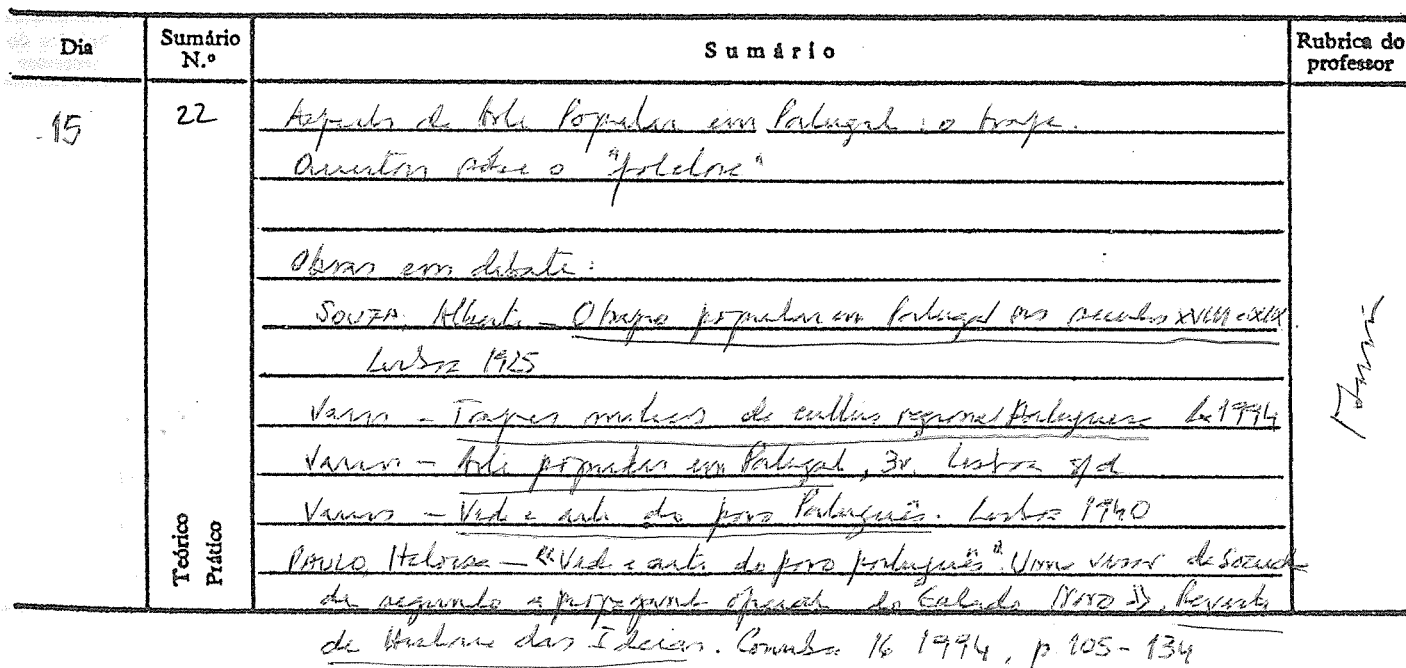 Dia
Sumário N.º
Sumário
Rubrica do professor
15
22
Aspectos da Arte Popular em Portugal: o traje.
sobre o "folclore"
Obras em debate:
SOUZA, Alberto – O trajo popular em Portugal nos seculos XVIII e XIX
Lisboa 1925
Varios – Trajes de cultura regional Portuguesa Lx 1994
Varios – Arte popular em Portugal, 3v. Lisboa s/d
Varios – Vida e arte do povo Português. Lisboa 1940
PAULO, Heloisa – «"Vida e arte do povo português". Uma visão da Socieda
de segundo a propaganda oficial do Estado Novo». Revista
de Historia das Ideias. Coimbra 16 1994, p. 105-134
Teórico
Prático